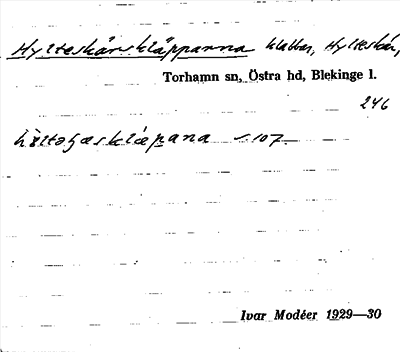 Hylteskärskläpparna klabbar, Hylteskär,
Torhamn sn, Östra hd, Blekinge l.
246
s. 107
Ivar Modéer 1929—30